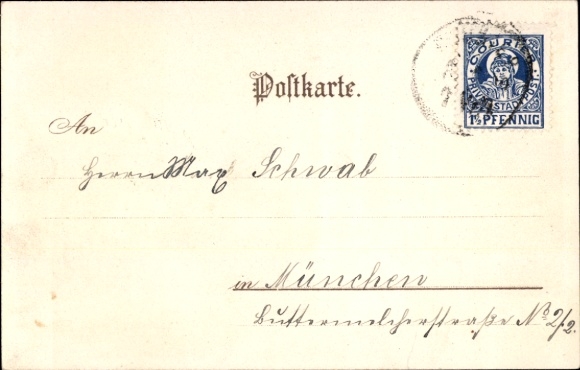 COURIER
PRIVAT-STADTPOST
1½ PFENNIG
Postkarte.
An
Herrn Max Schwab
in München
Buttermelcherstraße No 2/2.